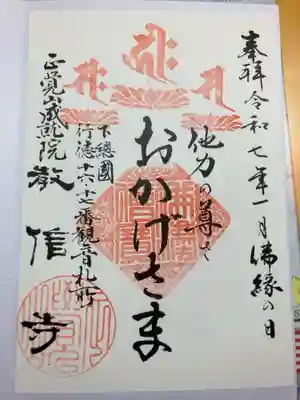 奉拝 令和七年一月 佛縁の日
他力の尊さ
おかげさま
下總國
行徳十六・十七番観音札所
正覚山成就院
教信寺